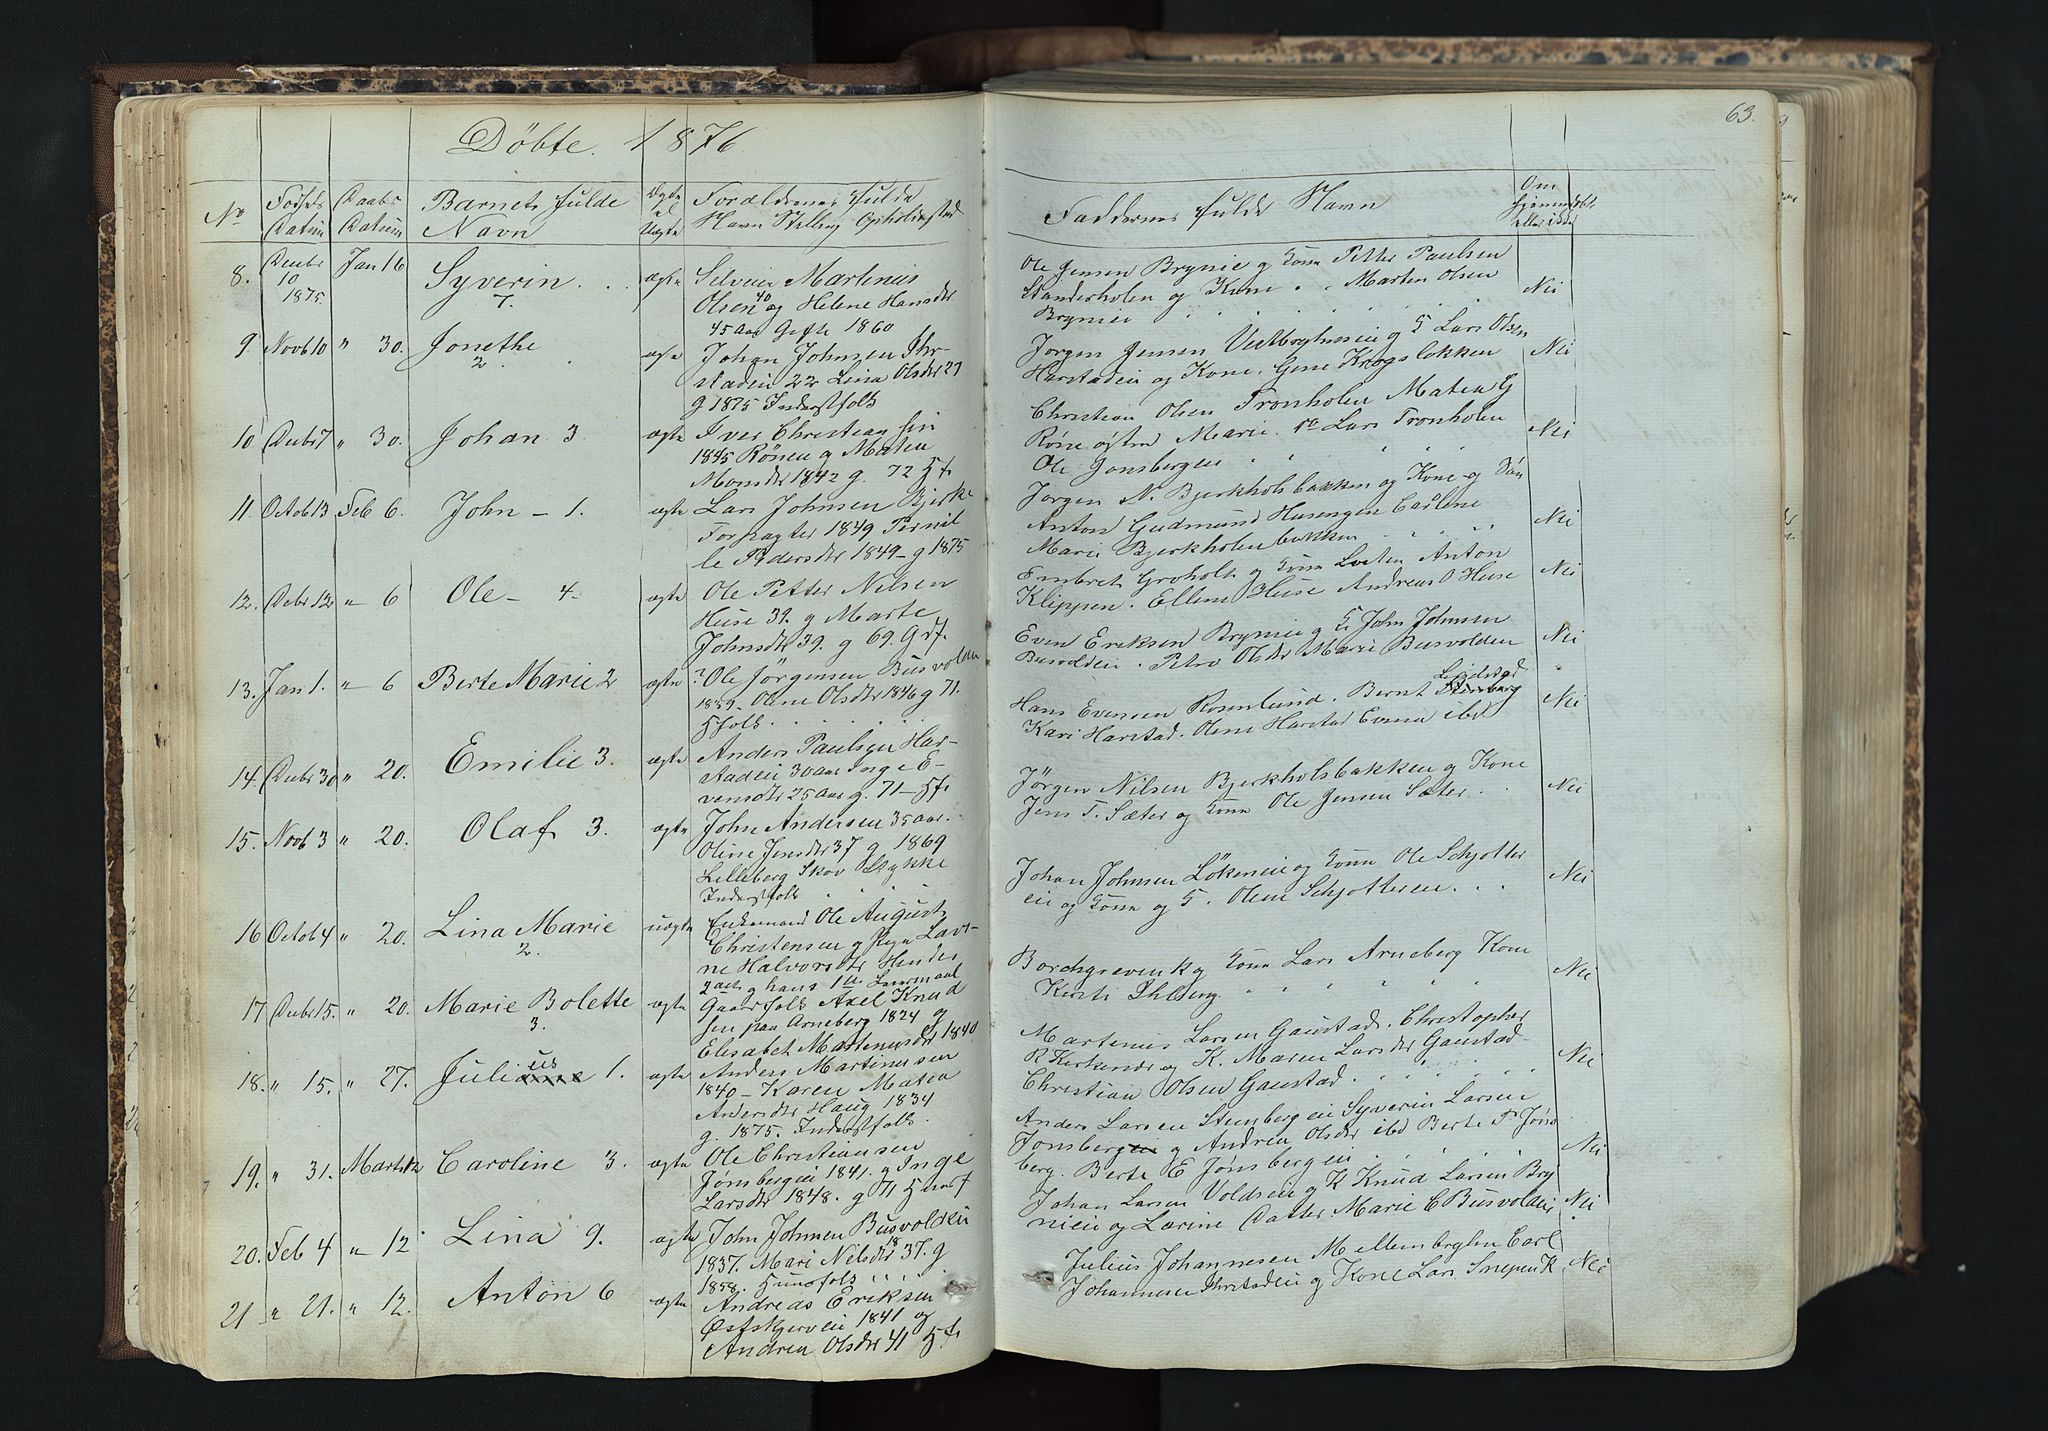 Döbte. 1876
63.
No
Fødsels Datum
Daabs Datum
Barnets fulde Navn
Ægte el Uægte
Forældrenes fulde Navn Stilling Opholdssted
Faddernes fulde Navn
Om hjemmedøbt eller ikke
8. Decbr 10 1875 Jan 16 Syverin. 7. ægte Selveier Martinus
Olsen 40 og Helene Hansdtr
45 Aar Gifte 1860
Ole Jensen Brynie g Kone Petter Paulsen
Standerholen og Kone. Marten Olsen
Bryniei
Nei
9. Novb 10 " 30. Jonethe 2. ægte Johan Johnsen
22 Lina Olsdtr 27
g 1875 Inderstfolk
Jørgen Jensen og G Lars Olsen
Harstadeie og Kone. Gine Krogsløkken
Nei
10 Decbr 7 " 30. Johan 3. ægte Iver Christiansen
1845 Rønen g Maten
Monsdtr 1842 g. 72 Hf
Christian Olsen Tronholen Maten G
Røne østre Marie. Lars Tronholen
Ole Gonsbergen
Nei
11. Octob 13 Feb 6. John - 1. ægte Lars Johnsen Bjerke
Forpagter 1849 Pernil
le Pedersdtr 1849 - g 1875
Jørgen N. Bjerkholsbakken og Kone g Søn
Anton Gudmund Husengen Carlene
Marie Bjerkholenbakken
Nei
12. Decbr 12 " 6 Ole - 4. ægte Ole Petter Nilsen
Huse 39. g Marte
Johnsdtr 39. g 69. Grf.
Embret Groholt g Kone Loeten Anton
Klippen. Ellene Huse Andreas O Huse
Nei
13. Jan 1. " 6 Berte Marie 2 ægte Ole Jörgensen Busvolden
1839. Olene Olsdtr 1846 g 71.
Hfolk
Even Eriksen Brynie g G John Johnsen
Busvoldeie. Petro Olsdtr Marie Busvolden
Nei
14. Decbr 30 " 20. Emilie 3. ægte Anders Paulsen Har-
stadeie 30 aar Inge E-
vensdtr 25 aar g. 71 - Hf
Hans Evensen Rosenlund. Bernt
Kari Harstad. Olene Harstad Emma ibd
Nei
15. Novb 3 " 20. Olaf 3. ægte John Andersen 35 aar.
Oline Jensdtr 37 g 1869
Lilleberg Skov Stykke
Inderstfolk
Jörgen Nilsen Bjerkholsbakken g Kone
Jens T. Sæter og Kone Ole Jensen Sæter
Nei
16 Octob 4 " 20. Lina Marie 2. uægte Enkemand Ole August
Christensen g Pige Lavi-
ne Halvorsdtr Hendes
2det g hans 1te Leiermaal
Johan Johnsen Lökeneie og Kone Ole Schjotter
eie og Kone og G. Olene Schjotteren
Nei
17 Decbr 15. " 20. Marie Bolette 3. ægte Gaardfolk Axel Knud
sen paa Arneberg 1824 g
Elisabet Martinusdtr 1840
Borchgrevenk og Kone Lars Arneberg Kone
Kersti Ihlberg
Nei
18. " 15. " 27. Julius 1. ægte Anders Martinusen
1840 - Karen Maten
Andersdtr Haug 1834
g. 1875. Inderstfolk.
Martenus Larsen Gaustad. Christopher
R Kirkende og K. Maren Larsdtr Gaustad
Christian Olsen Gaustad
Nei
19. " 31. Marts 12 Caroline 3. ægte Ole Christiansen
Jønsbergeie 1841. g Inge
Larsdtr 1848. g 71 Husf
Anders Larsen Stembergeie Syverin Larsen
Jonsberg g Andrea Olsdtr ibd Berte P Jøns
berg. Berte E Jønsbergeie
Nei
20. Feb 4 " 12 Lina 9. ægte John Johnsen Busvoldeie
1837. Mari Nilsdtr 37. g
1858. Husfolk
Johan Larsen Voldseie g K Knud Larsen Bry
nieie og Lorine Datter Marie C Busvoldeie
Nei
21 " 21. " 12. Anton 6 ægte Andreas Eriksen
Østskjerveie 1841 og
Andrea Olsdtr 41 Hf
Julius Johannesen Mellembyhn Carl
Johannesen og Kone Lars Snepen K
Nei